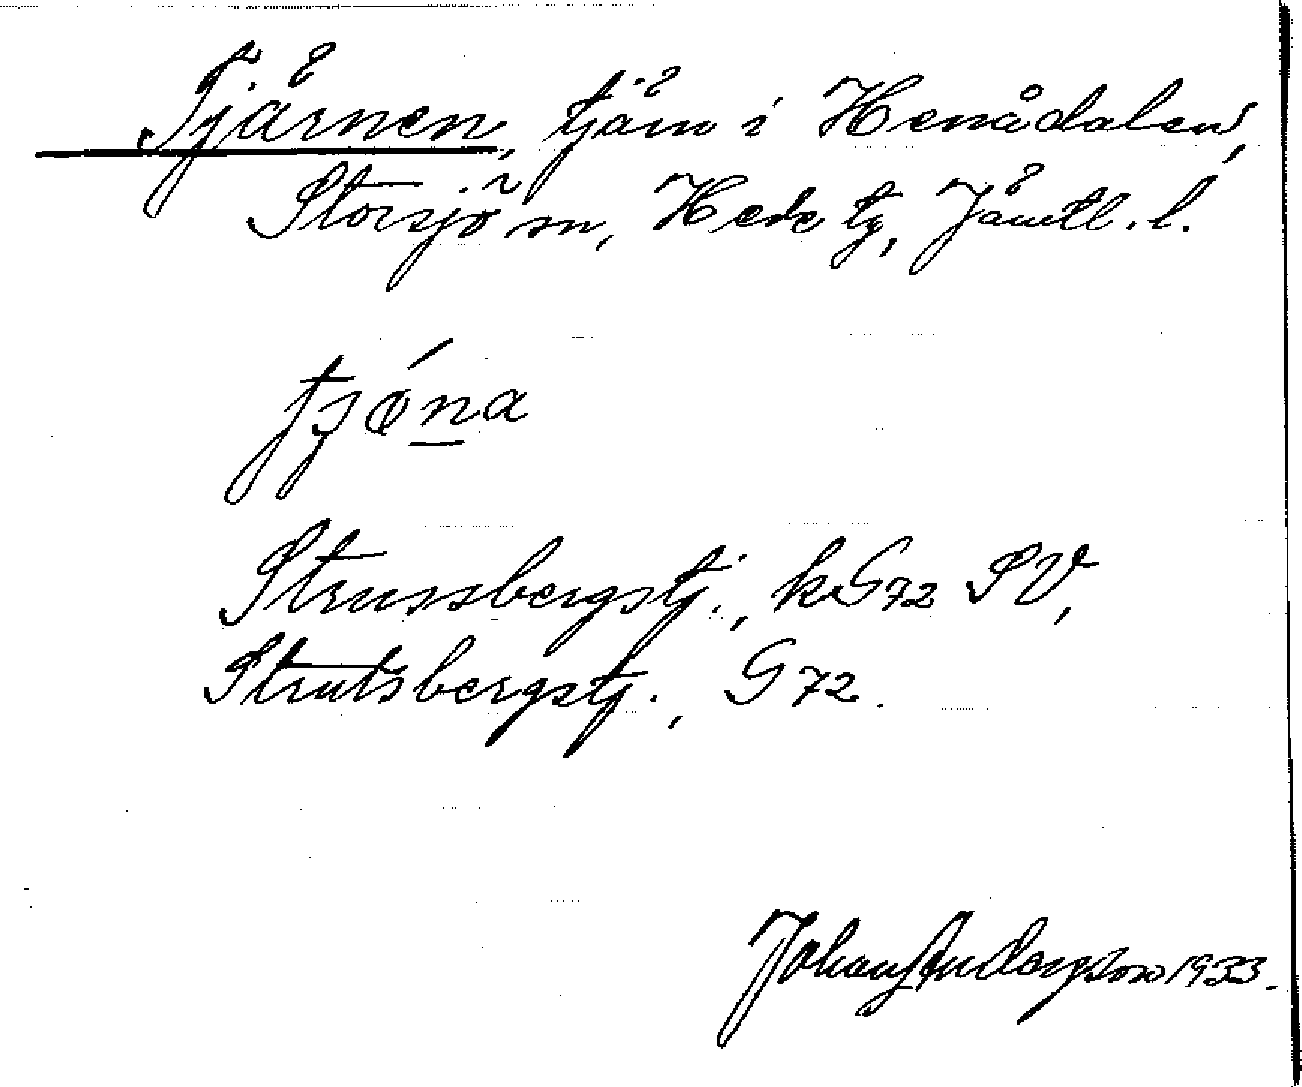 Tjärnen, tjärn i Henådalen,
Storsjö sn, Hede tg, Jämtl. l.
tjǿna
Strussbergstj., kG72 SV,
Strutsbergstj., G72.
Johan Anderzson 1933.